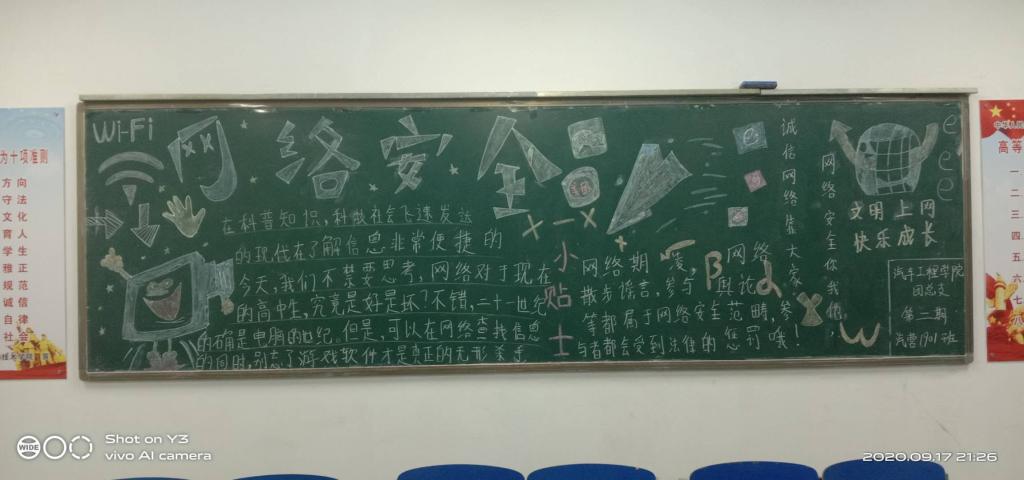 为十项准则
方向
守法
文化
育人
学生
雅正
规范
诚信
自律
社会
Wi-Fi
网络安全
在科普知识,科技社会飞速发达
的现代在了解信息非常便捷的
今天,我们不禁要思考,网络对于现在
的高中生,究竟是好是坏?不错,二十一世纪
的确是电脑的世纪.但是,可以在网络查找信息
的同时,别忘了游戏软件才是真正的无形杀手
小贴士
网络期凌,β网络
散步谣言,参与舆论
等都属于网络安全范畴,参
与者都会受到法律的惩罚哦!
诚信网络靠大家
网络安全你我们
e
e
e
文明上网
快乐成长
汽车工程学院
团总支
第二期
汽营1901班
高等
一
二
三
四
五
六
七
WIDE
Shot on Y3
vivo AI camera
2020.09.17 21:26